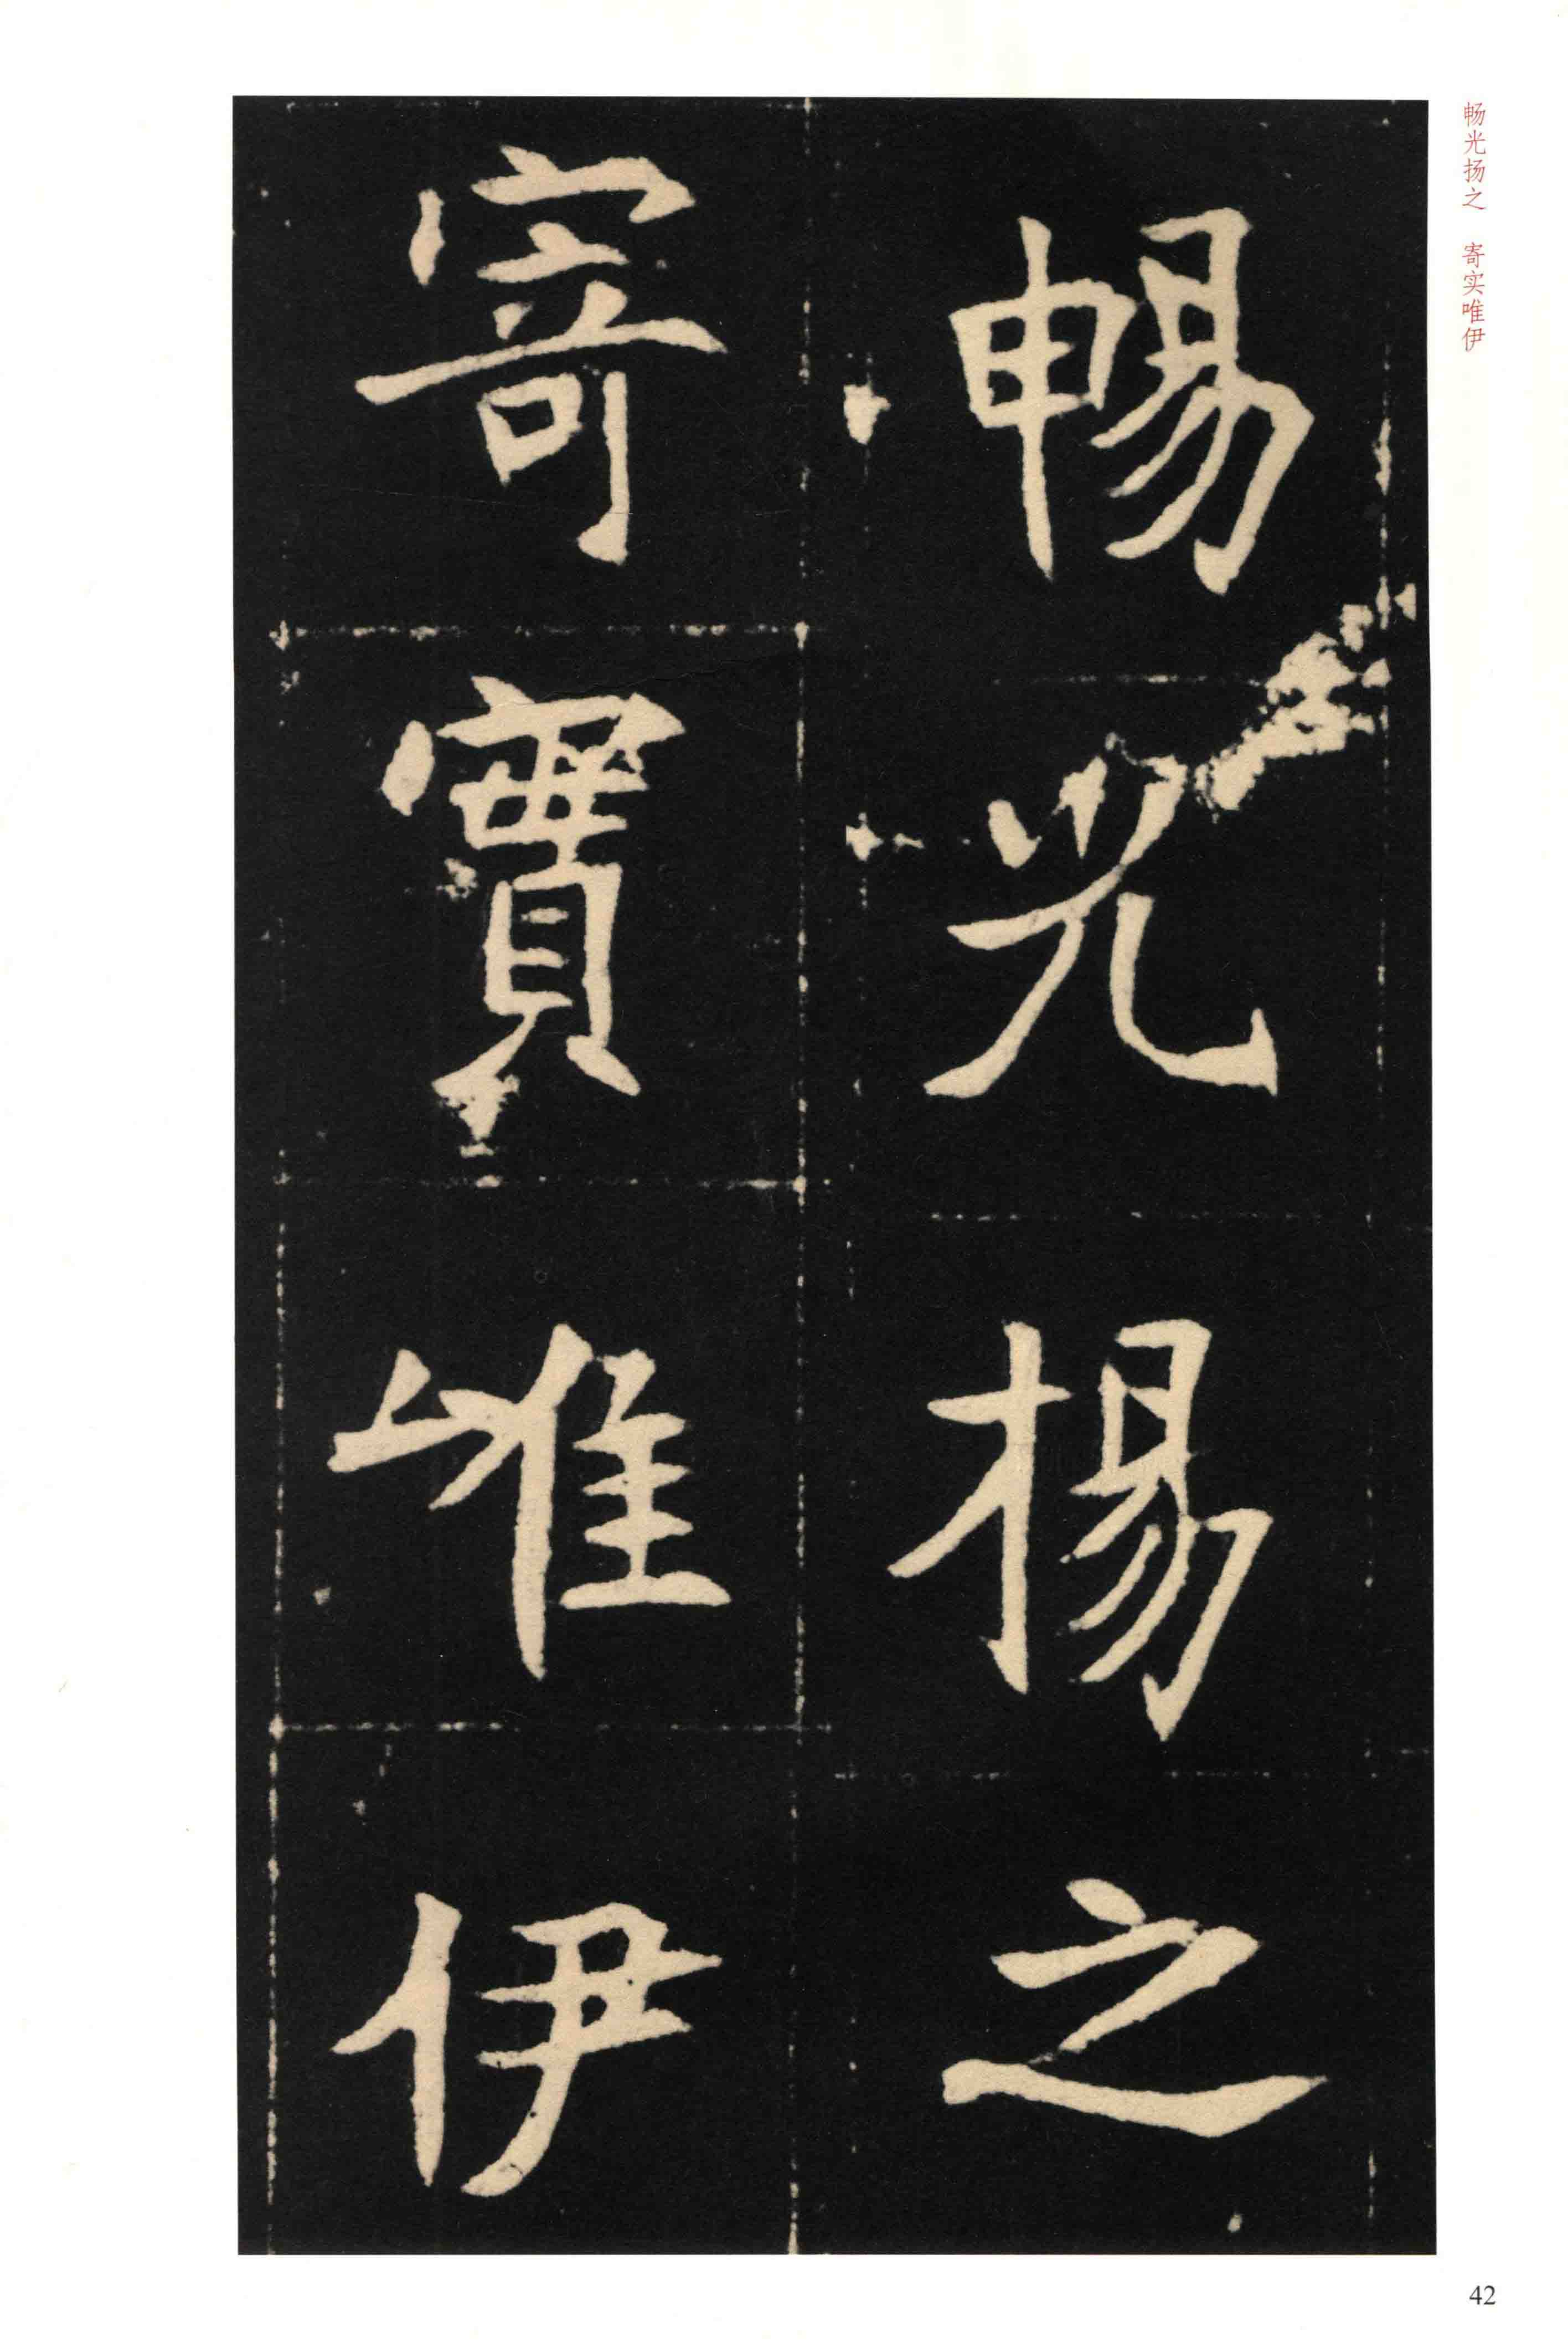 暢光揚之
寄實唯伊
畅光扬之 寄实唯伊
42